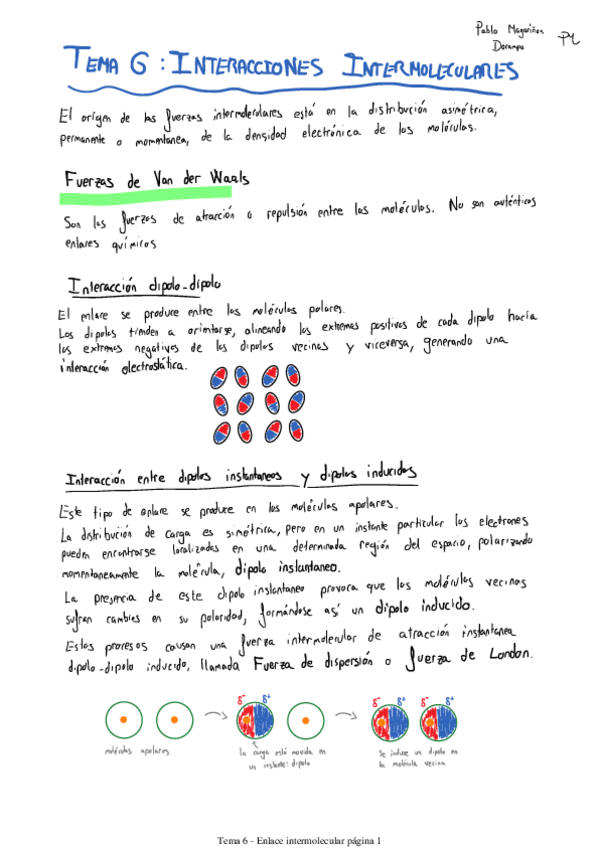 Pablo Magariños
Docampo
PM
TEMA 6: INTERACCIONES INTERMOLECULARES
El origen de las fuerzas intermoleculares está en la distribución asimétrica,
permanente o momentánea, de la densidad electrónica de las moléculas.
Fuerzas de Van der Waals
Son las fuerzas de atracción o repulsión entre las moléculas. No son auténticos
enlaces químicos
Interacción dipolo-dipolo
El enlace se produce entre las moléculas polares.
Los dipolos tienden a orientarse, alineando los extremos positivos de cada dipolo hacia
los extremos negativos de los dipolos vecinos y viceversa, generando una
interacción electrostática.
Interacción entre dipolos instantaneos y dipolos inducidos
Este tipo de enlace se produce en las moléculas apolares.
La distribución de carga es simétrica, pero en un instante particular los electrones
pueden encontrarse localizados en una determinada región del espacio, polarizando
momentaneamente la molécula, dipolo instantaneo.
La presencia de este dipolo instantaneo provoca que las moléculas vecinas
sufran cambios en su polaridad, formándose así un dipolo inducido.
Estos procesos causan una fuerza intermolecular de atracción instantanea
dipolo-dipolo inducido, llamada Fuerza de dispersión o fuerza de London.
δ- δ+ δ- δ+ δ- δ+
moléculas apolares
la carga está movida en
un instante: dipolo
Se induce un dipolo en
la molécula vecina
Tema 6 - Enlace intermolecular página 1